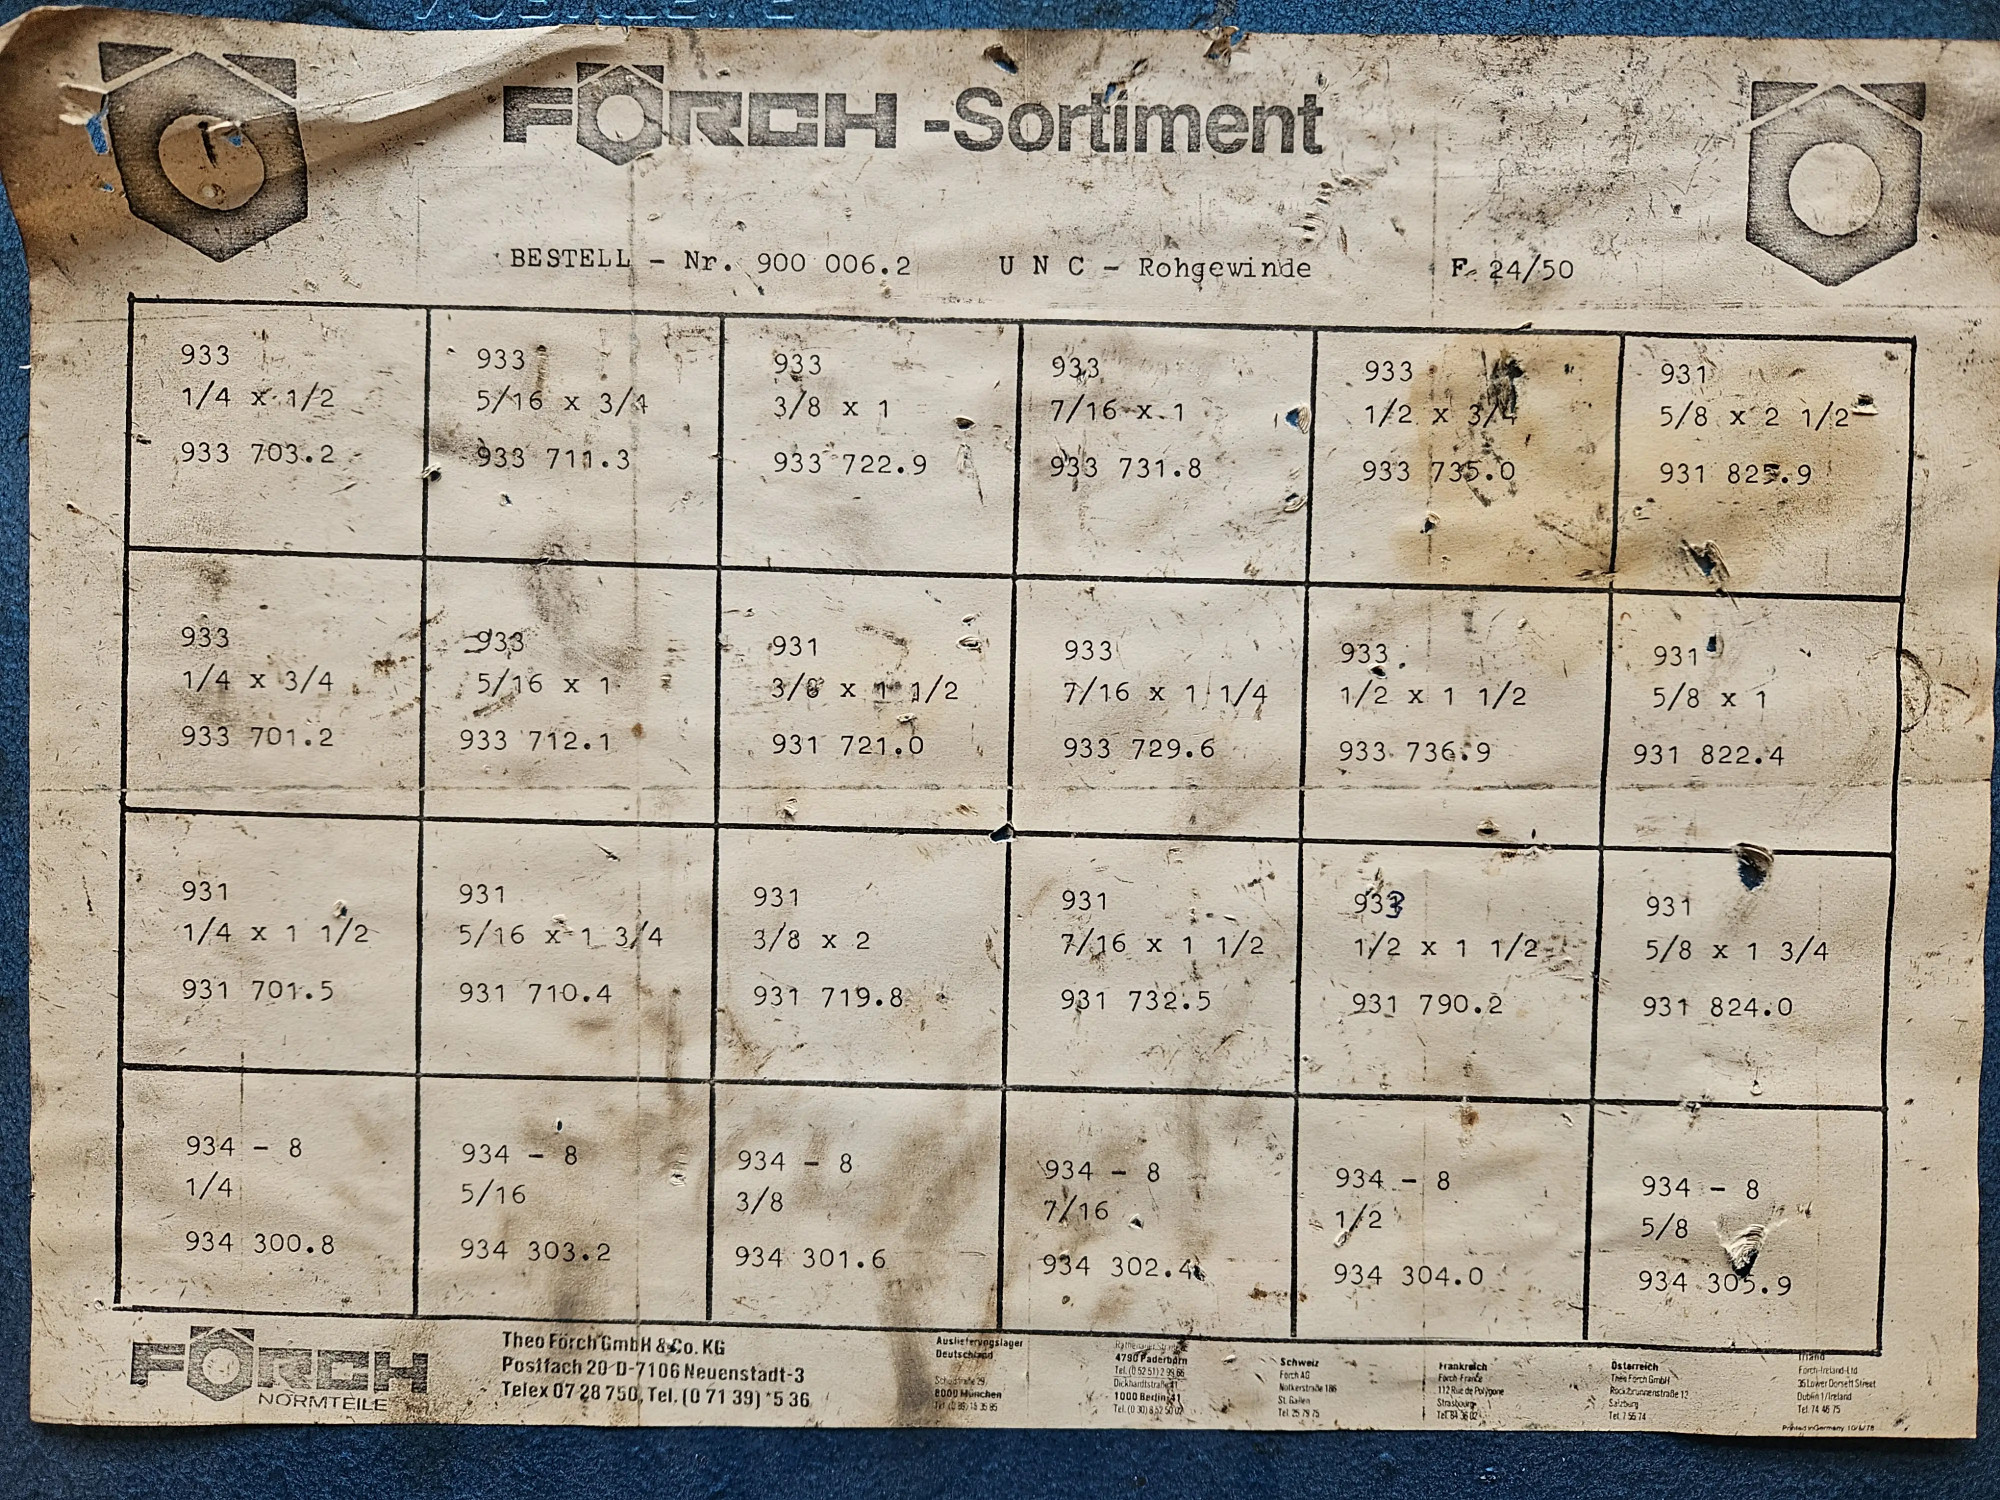 FÖRCH -Sortiment
BESTELL - Nr. 900 006.2 U N C - Rohgewinde F. 24/50
933
1/4 x 1/2
933 703.2
933
5/16 x 3/4
933 711.3
933
3/8 x 1
933 722.9
933
7/16 x 1
933 731.8
933
1/2 x 3/4
933 735.0
931
5/8 x 2 1/2
931 825.9
933
1/4 x 3/4
933 701.2
933
5/16 x 1
933 712.1
931
3/8 x 1 1/2
931 721.0
933
7/16 x 1 1/4
933 729.6
933
1/2 x 1 1/2
933 736.9
931
5/8 x 1
931 822.4
931
1/4 x 1 1/2
931 701.5
931
5/16 x 1 3/4
931 710.4
931
3/8 x 2
931 719.8
931
7/16 x 1 1/2
931 732.5
933
1/2 x 1 1/2
931 790.2
931
5/8 x 1 3/4
931 824.0
934 - 8
1/4
934 300.8
934 - 8
5/16
934 303.2
934 - 8
3/8
934 301.6
934 - 8
7/16
934 302.4
934 - 8
1/2
934 304.0
934 - 8
5/8
934 305.9
FÖRCH
NORMTEILE
Theo Förch GmbH & Co. KG
Postfach 20 D-7106 Neuenstadt-3
Telex 07 28 750, Tel. (0 71 39) *5 36
Auslieferungslager
Deutschland
8000 München
4790 Paderborn
1000 Berlin 41
Schweiz
Förch AG
St. Gallen
Tel. 25 79 75
Frankreich
Förch France
112 Rue de Polygone
Strasbourg
Österreich
Theo Förch GmbH
Salzburg
Irland
Förch-Ireland-Ltd
35 Lower Dorsett Street
Dublin 1/Ireland
Tel. 74 46 75
Printed in Germany